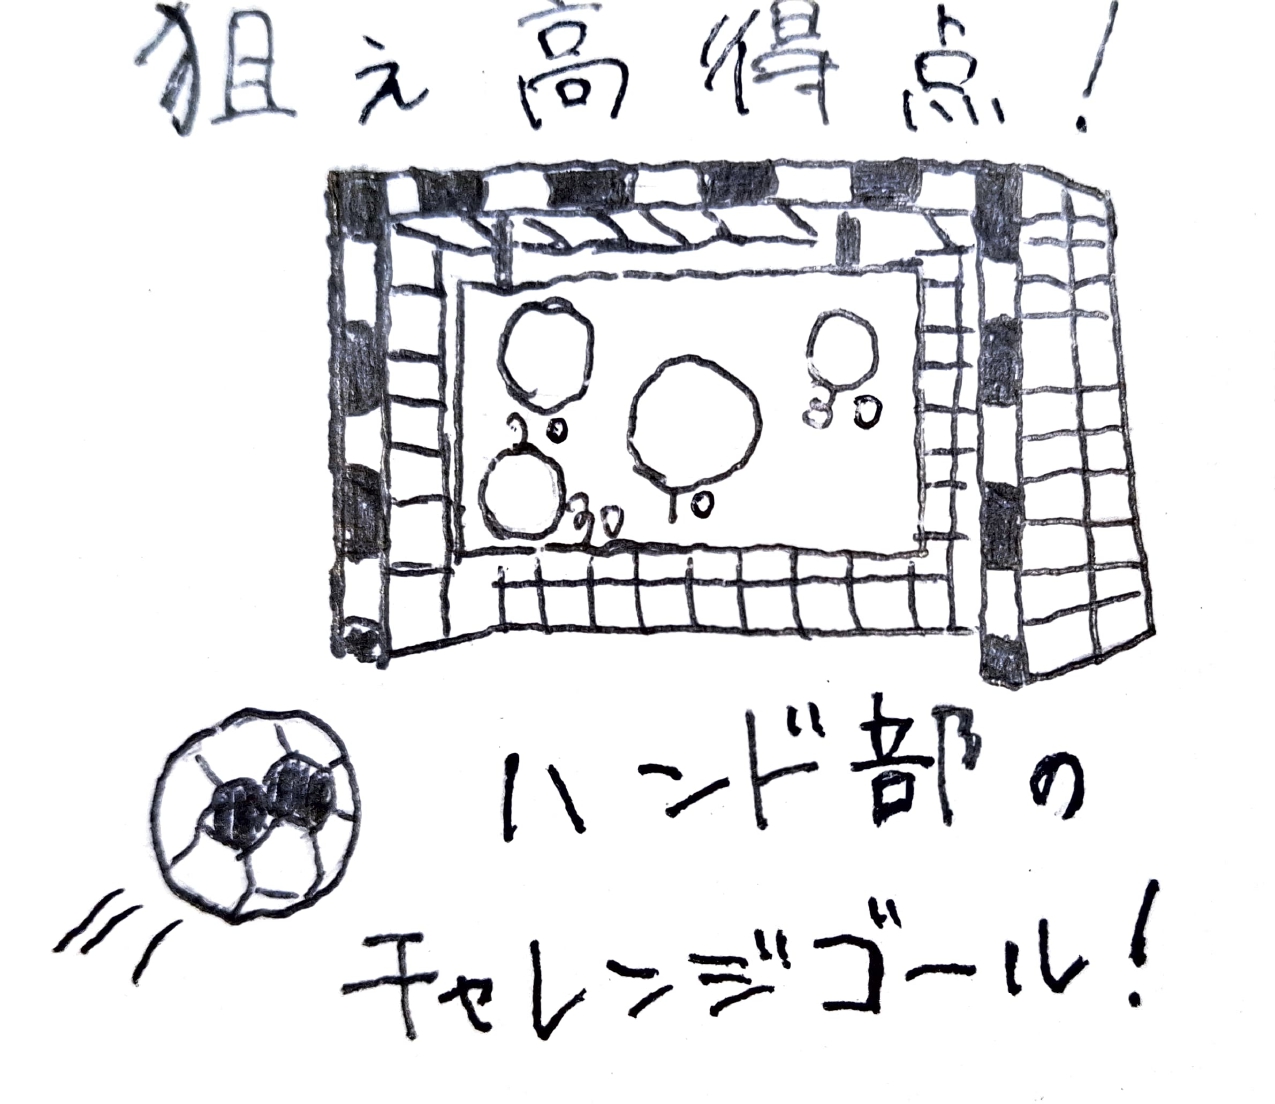 狙え高得点!
30
20
30
10
ハンド部の
チャレンジゴール!